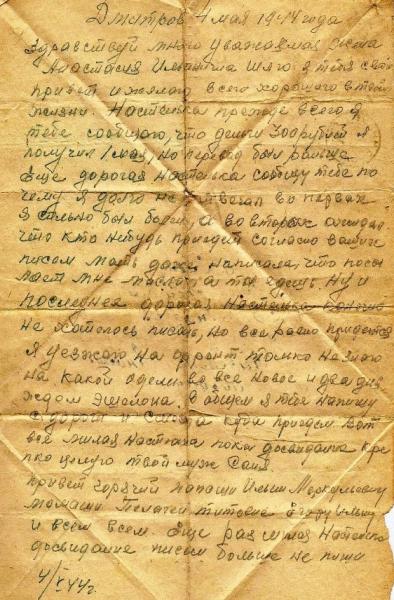 Дмитров 4 мая 1944 года
Здравствуй много уважаемая
Анастасия Ильинична шлю я тебе свой
привет и желаю всего хорошего в твоей
жизни. Настенька прежде всего я
тебе сообщаю, что деньги 300 рублей я
получил 1 мая, но перевод был раньше
Еще дорогая Настенька сообщу тебе по
чему я долго не отвечал во первых
я сильно был болен а во вторых ожидал
что кто нибудь приедит согласно ваших
писем мать даже написала, что посы
лает мне масло а ты едешь, Ну и
последнее дорогая Настенька
не хотелось писать, но все равно придется
Я уезжаю на фронт только не знаю
на какой одели во все новое и два дня
ждем эшелона. В общем я тебе напишу
с дороги и куда приедем Вот
все милая Настенька пока досвидания кре
пко целую твой муж Саня
привет горячий папаши Ильи Меркульевичу
мамаши Пелагеи Титовне Егору Ильичу
и всем всем. Еще раз милая Настенька
досвидание писем больше не пиши
4/V 44г.